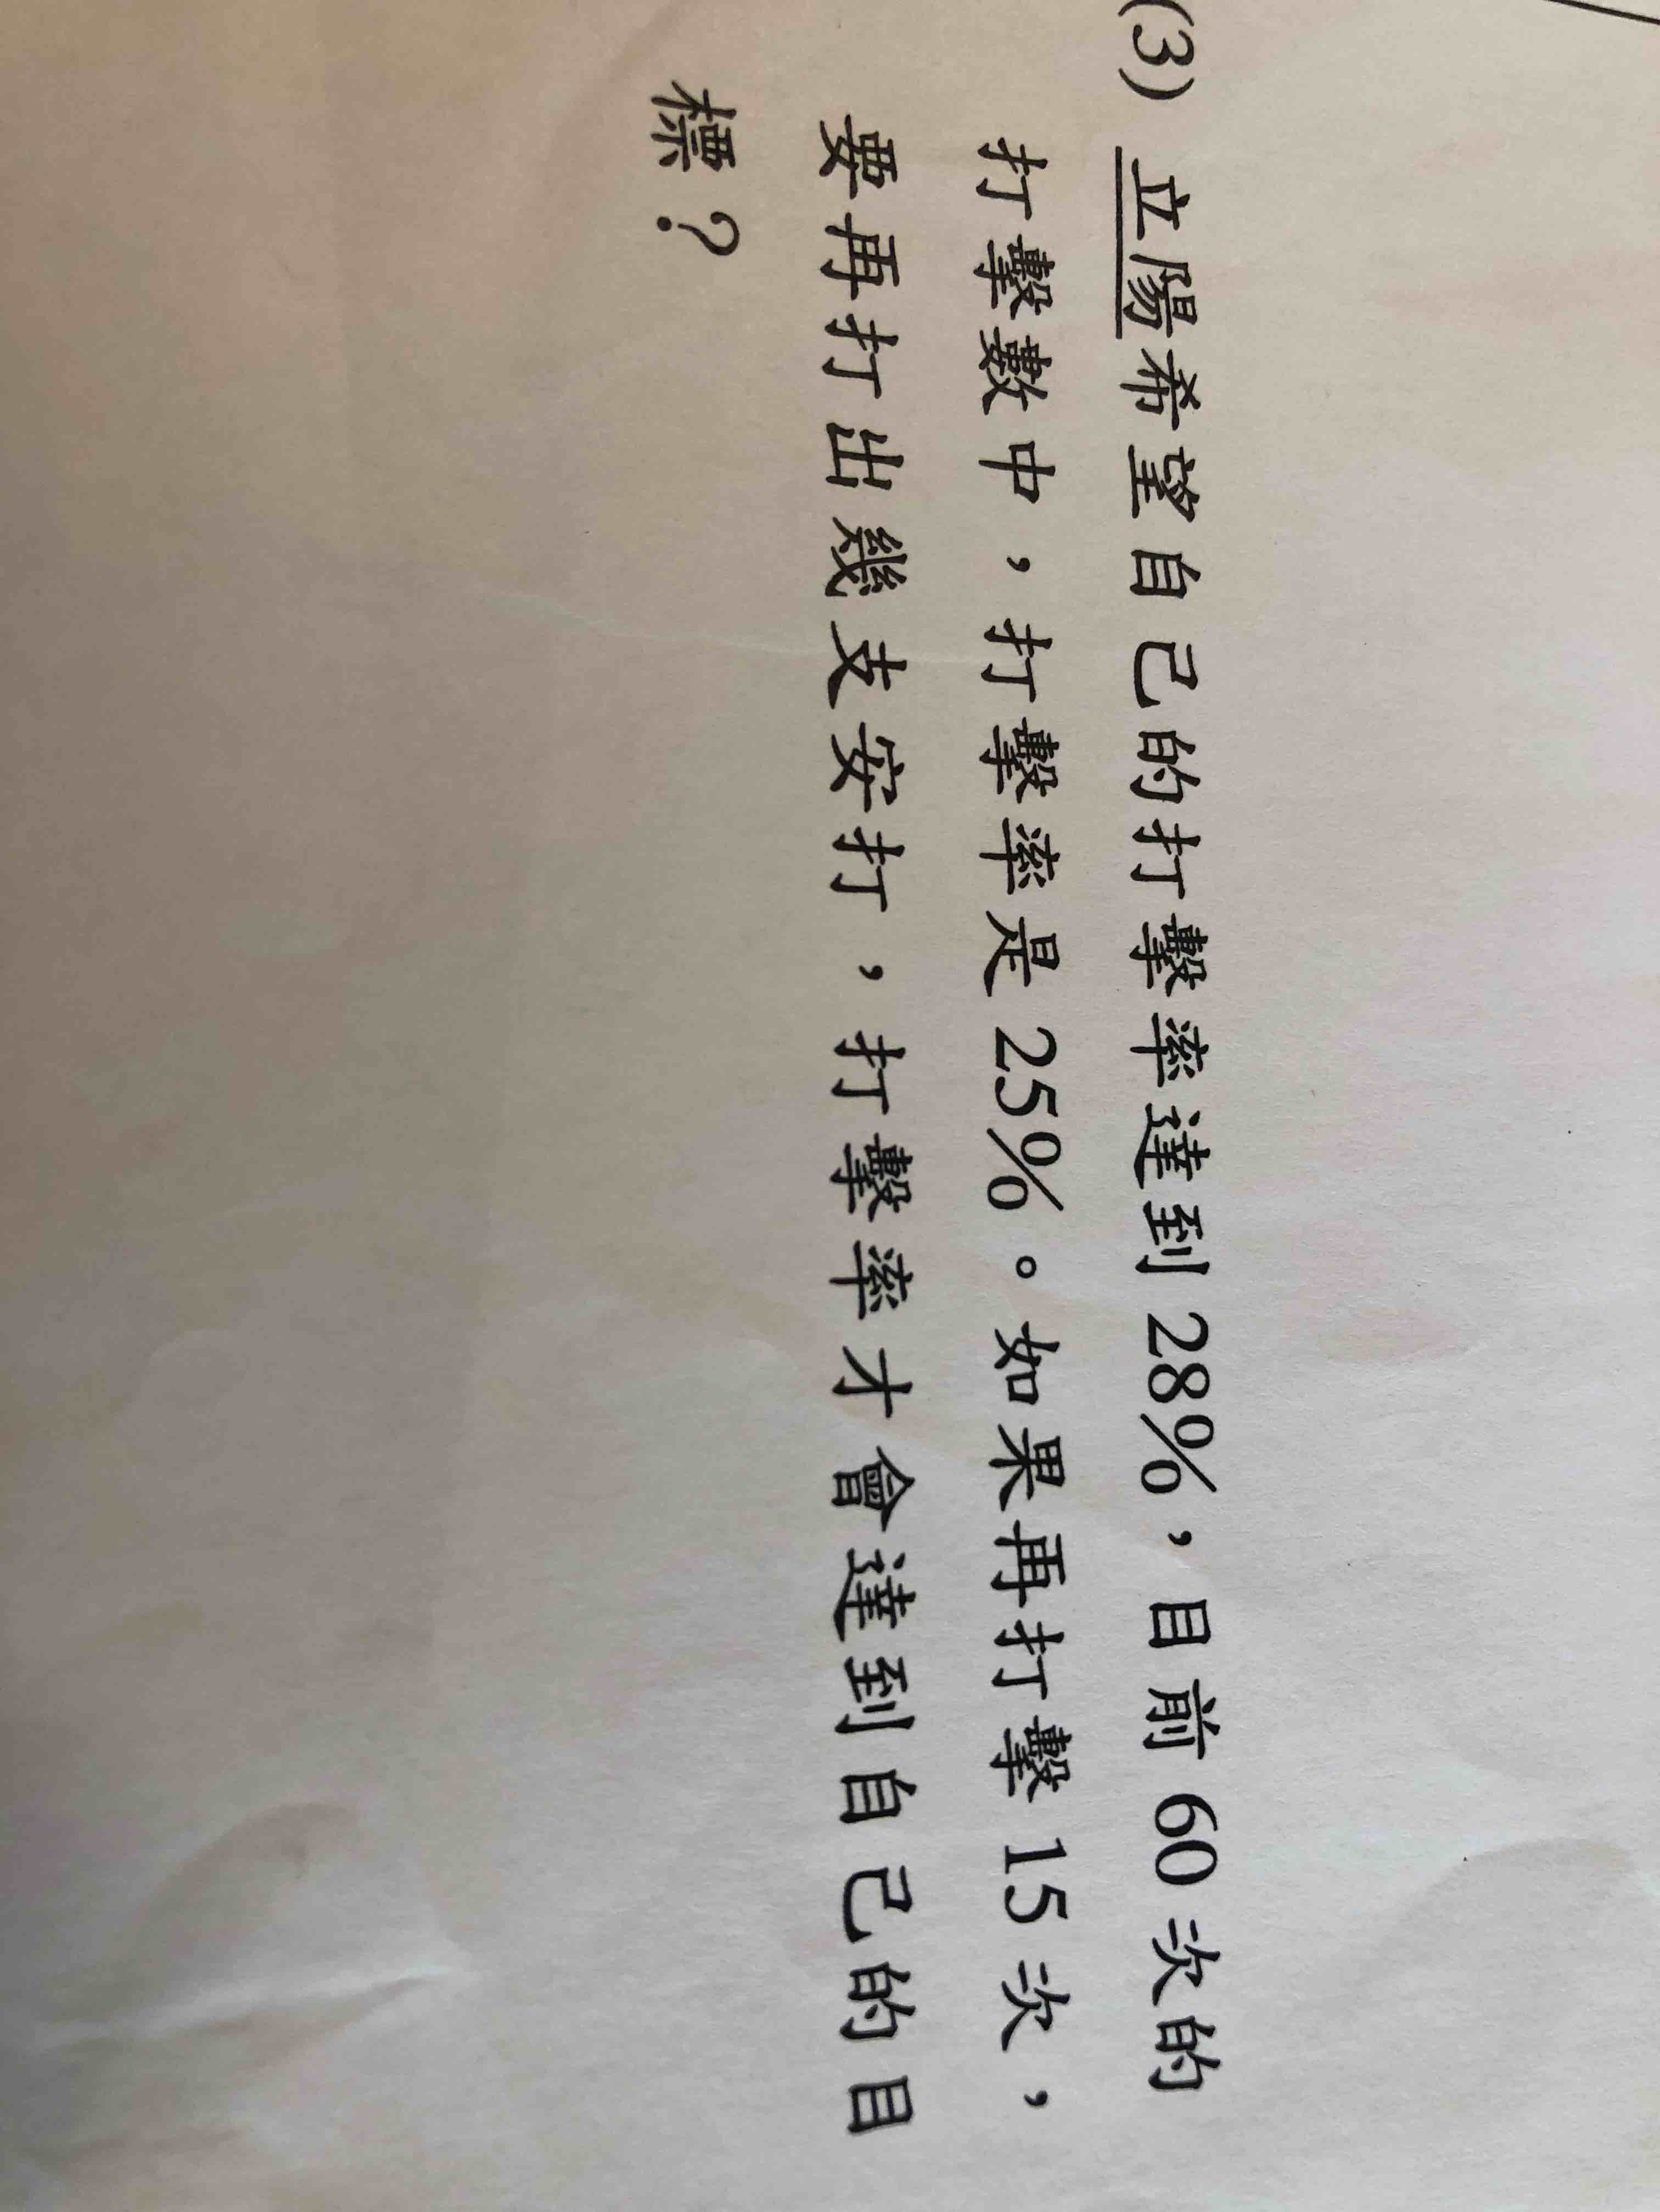 (3) 立陽希望自己的打擊率達到 28%，目前 60 次的
打擊數中，打擊率是 25%。如果再打擊 15 次，
要再打出幾支安打，打擊率才會達到自己的目
標？